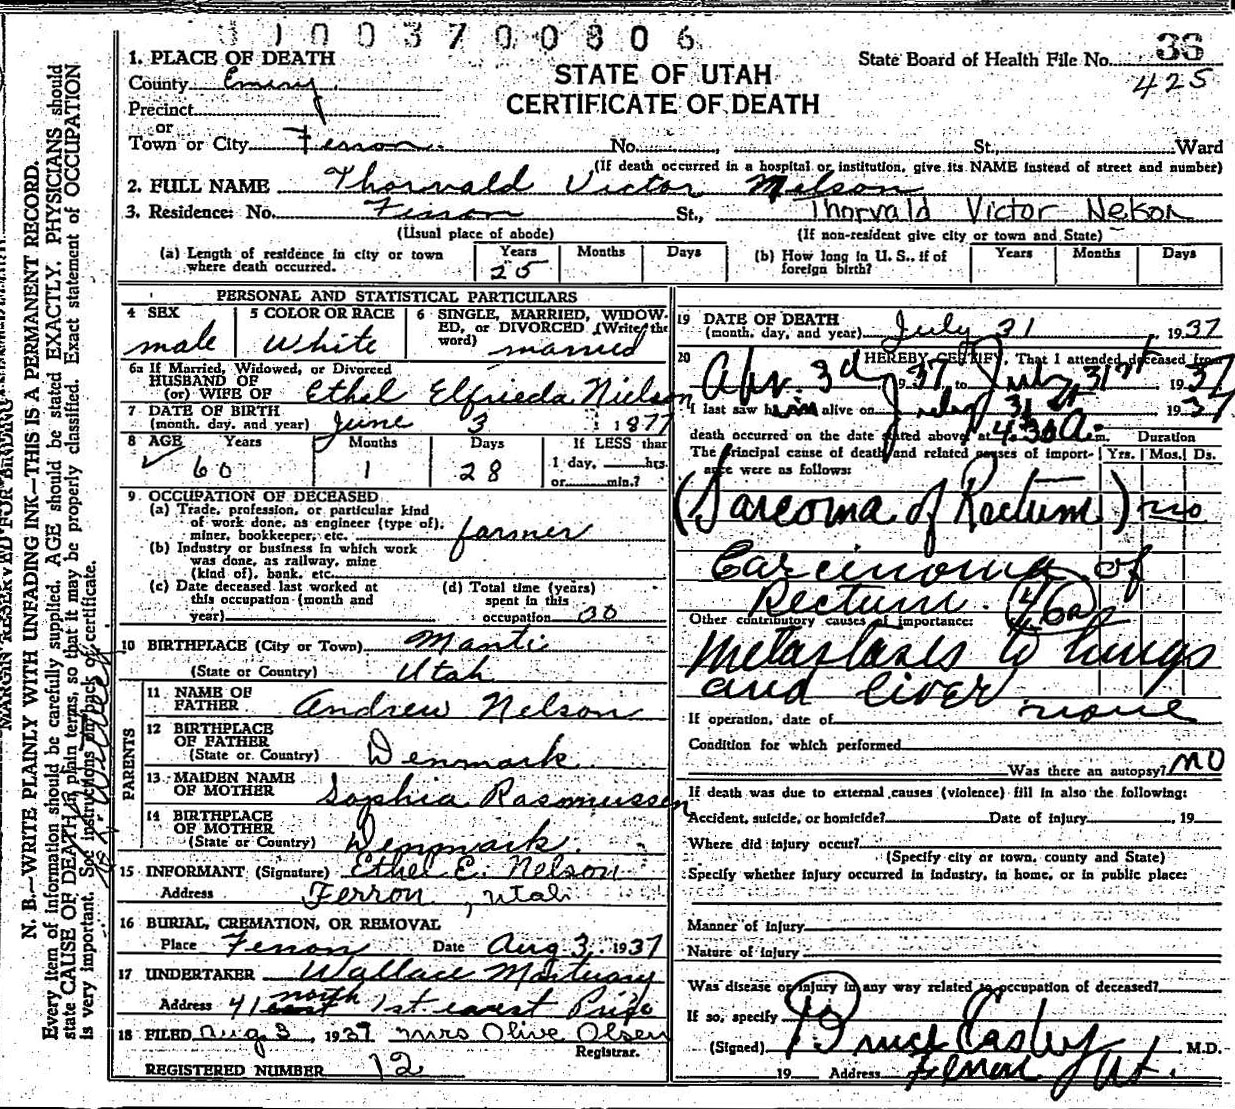 003700806
1. PLACE OF DEATH
County Emery
Precinct
or
Town or City Ferron No. St., Ward
(If death occurred in a hospital or institution, give its NAME instead of street and number)
STATE OF UTAH
CERTIFICATE OF DEATH
State Board of Health File No. 36
425
2. FULL NAME Thorvald Victor Nelson
3. Residence: No. Ferron St., Thorvald Victor Nelson
(Usual place of abode) (If non-resident give city or town and State)
(a) Length of residence in city or town where death occurred. Years 25 Months Days
(b) How long in U. S., if of foreign birth? Years Months Days
PERSONAL AND STATISTICAL PARTICULARS
4 SEX male
5 COLOR OR RACE White
6 SINGLE, MARRIED, WIDOWED, or DIVORCED (Write the word) married
6a If Married, Widowed, or Divorced
HUSBAND OF
(or) WIFE OF Ethel Elfrieda Nielson
7 DATE OF BIRTH
(month, day, and year) June 3 1877
8 AGE Years 60 Months 1 Days 28 If LESS than 1 day, hrs. or min.?
9 OCCUPATION OF DECEASED
(a) Trade, profession, or particular kind of work done, as engineer (type of), miner, bookkeeper, etc. farmer
(b) Industry or business in which work was done, as railway, mine (kind of), bank, etc.
(c) Date deceased last worked at this occupation (month and year)
(d) Total time (years) spent in this occupation 30
10 BIRTHPLACE (City or Town) Manti
(State or Country) Utah
PARENTS
11 NAME OF FATHER Andrew Nelson
12 BIRTHPLACE OF FATHER
(State or Country) Denmark
13 MAIDEN NAME OF MOTHER Sophia Rasmussen
14 BIRTHPLACE OF MOTHER
(State or Country) Denmark.
15 INFORMANT (Signature) Ethel E. Nelson
Address Ferron, Utah
16 BURIAL, CREMATION, OR REMOVAL
Place Ferron Date Aug 3, 1937
17 UNDERTAKER Wallace Mortuary
Address 41 north 1st east Price
18 FILED Aug 3, 1937 Mrs Olive Olsen
Registrar.
REGISTERED NUMBER 12
19 DATE OF DEATH
(month, day, and year) July 31 1937
20 I HEREBY CERTIFY, That I attended deceased from
Apr. 3d 1937 to July 31st 1937
I last saw him alive on July 31st 1937
death occurred on the date stated above at 4:30 A.m. Duration
The principal cause of death and related causes of importance were as follows: Yrs. Mos. Ds.
(Sarcoma of Rectum) no
Carcinoma of
Rectum. 46a
Other contributory causes of importance:
Metastases to lungs
and liver
If operation, date of none
Condition for which performed
Was there an autopsy? no
If death was due to external causes (violence) fill in also the following:
Accident, suicide, or homicide? Date of injury , 19
Where did injury occur?
(Specify city or town, county and State)
Specify whether injury occurred in industry, in home, or in public place:
Manner of injury
Nature of injury
Was disease or injury in any way related to occupation of deceased?
If so, specify
(Signed) Bruce Easley M.D.
19 Address Ferron Ut.
MARGIN RESERVED FOR BINDING
N. B.—WRITE PLAINLY WITH UNFADING INK—THIS IS A PERMANENT RECORD.
Every item of information should be carefully supplied. AGE should be stated EXACTLY. PHYSICIANS should
state CAUSE OF DEATH in plain terms, so that it may be properly classified. Exact statement of OCCUPATION
is very important. See instructions on back of certificate.